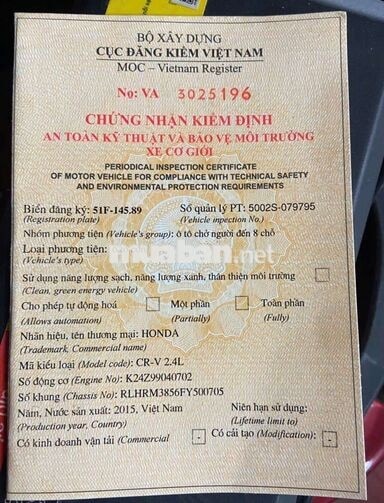 BỘ XÂY DỰNG
CỤC ĐĂNG KIỂM VIỆT NAM
MOC – Vietnam Register
No: VA 3025196
CHỨNG NHẬN KIỂM ĐỊNH
AN TOÀN KỸ THUẬT VÀ BẢO VỆ MÔI TRƯỜNG
XE CƠ GIỚI
PERIODICAL INSPECTION CERTIFICATE
OF MOTOR VEHICLE FOR COMPLIANCE WITH TECHNICAL SAFETY
AND ENVIRONMENTAL PROTECTION REQUIREMENTS
Biển đăng ký: 51F-145.89 Số quản lý PT: 5002S-079795
(Registration plate) (Vehicle inpection No.)
Nhóm phương tiện (Vehicle's group): ô tô chở người đến 8 chỗ
Loại phương tiện:
(Vehicle's type)
muaban.net
Sử dụng năng lượng sạch, năng lượng xanh, thân thiện môi trường
(Clean, green energy vehicle)
Cho phép tự động hoá Một phần Toàn phần
(Allows automation) (Partially) (Fully)
Nhãn hiệu, tên thương mại: HONDA
(Trademark, Commercial name)
Mã kiểu loại (Model code): CR-V 2.4L
Số động cơ (Engine No): K24Z99040702
Số khung (Chassis No): RLHRM3856FY500705
Năm, Nước sản xuất: 2015, Việt Nam Niên hạn sử dụng:
(Production year, Country) (Lifetime limit to)
Có kinh doanh vận tải (Commercial - Có cải tạo (Modification): -